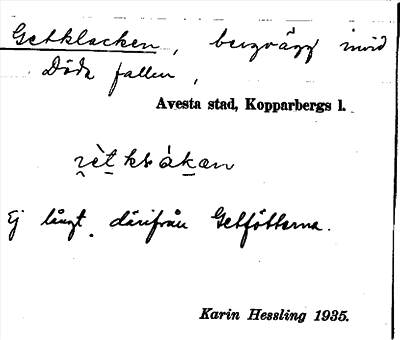 Getklacken, bergvägg invid
Döda fallen,
Avesta stad, Kopparbergs l.
Ej långt därifrån Getfötterna.
Karin Hessling 1935.